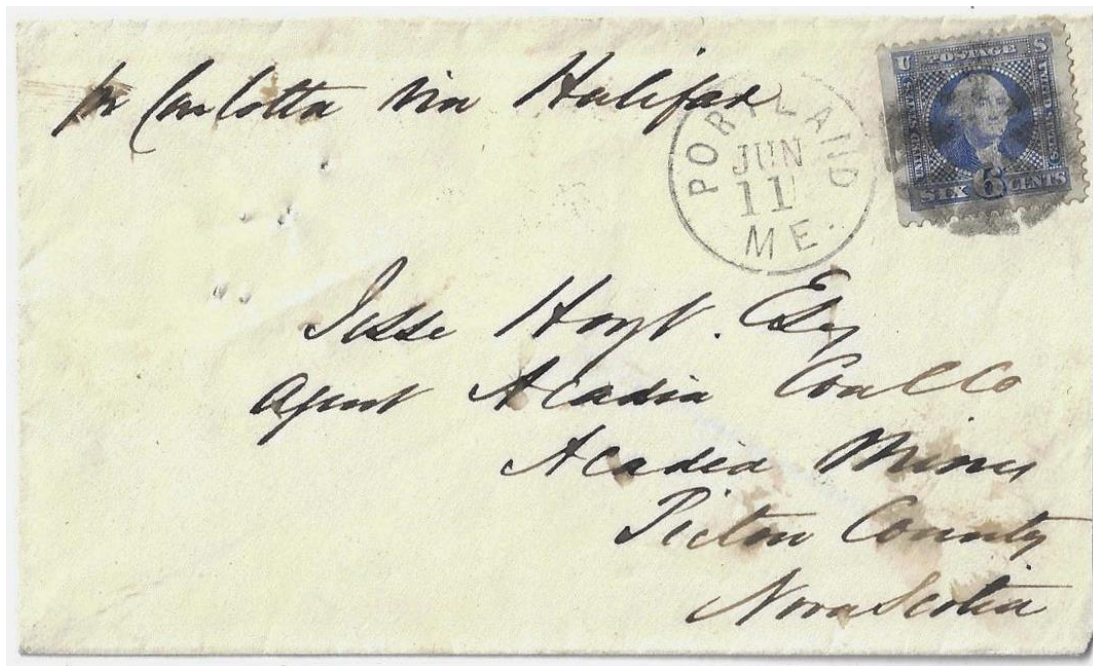 pr Carlotta via Halifax
PORTLAND
JUN
11
ME.
U POSTAGE S
UNITED STATES
SIX 6 CENTS
Jesse Hoyt. Esq
Agent Acadia Coal Co
Acadia Mines
Pictou County
Nova Scotia